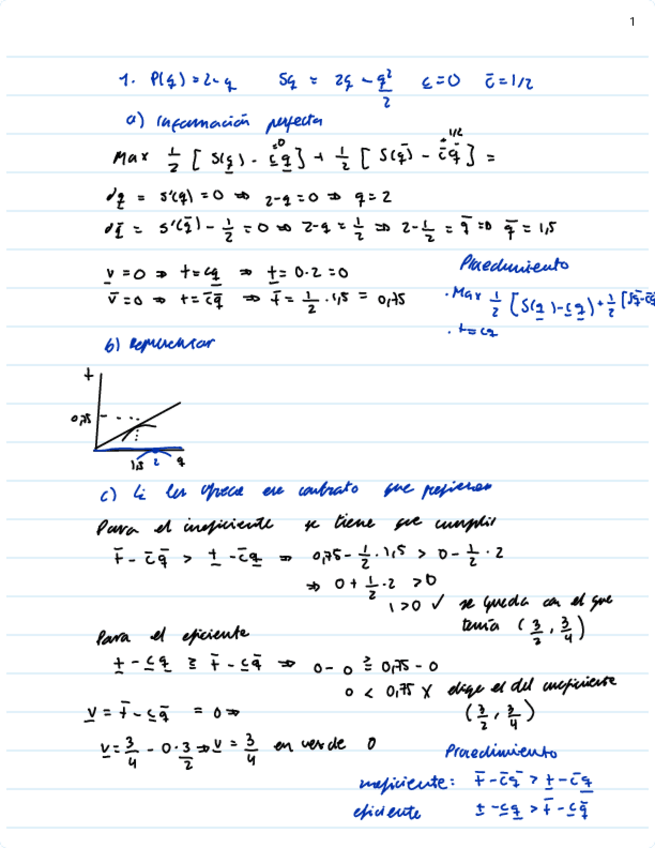 1
1. P(q) = 2-q   Sq = 2q - q²/2   c̲=0   c̄=1/2
a) Información perfecta
Max 1/2 [S(q̲) - c̲q̲] + 1/2 [S(q̄) - c̄q̄] =
=0   1/2
dq̲ = S'(q) = 0 ⇒ 2-q=0 ⇒ q=2
dq̄ = S'(q̄) - 1/2 = 0 ⇒ 2-q = 1/2 ⇒ 2-1/2 = q̄ ⇒ q̄ = 1,5
v̲=0 ⇒ t=cq ⇒ t̲=0·2=0
v̄=0 ⇒ t=c̄q̄ ⇒ t̄=1/2·1,5=0,75
Procedimiento
·Max 1/2 [S(q̲)-c̲q̲)+1/2 [S̄q̄-c̄q̄
· t=cq
b) Representar
t
0,75
1,5 2 q
c) Si les ofrece ese contrato que prefieren
Para el ineficiente se tiene que cumplir
t̄ - c̄q̄ > t̲ - c̄q̲ ⇒ 0,75 - 1/2·1,5 > 0 - 1/2·2
⇒ 0 + 1/2·2 > 0
1>0 ✓ se queda con el que
tenía (3/2, 3/4)
Para el eficiente
t̲ - c̲q̲ ≥ t̄ - c̲q̄ ⇒ 0-0 ≥ 0,75-0
0 < 0,75 X elige el del ineficiente
(3/2, 3/4)
v̲ = t̄ - c̲q̄ = 0 ⇒
v̲ = 3/4 - 0·3/2 ⇒ v̲ = 3/4 en vez de 0
Procedimiento
ineficiente: t̄-c̄q̄ > t̲-c̄q̲
eficiente t̲-c̲q̲ > t̄-c̲q̄